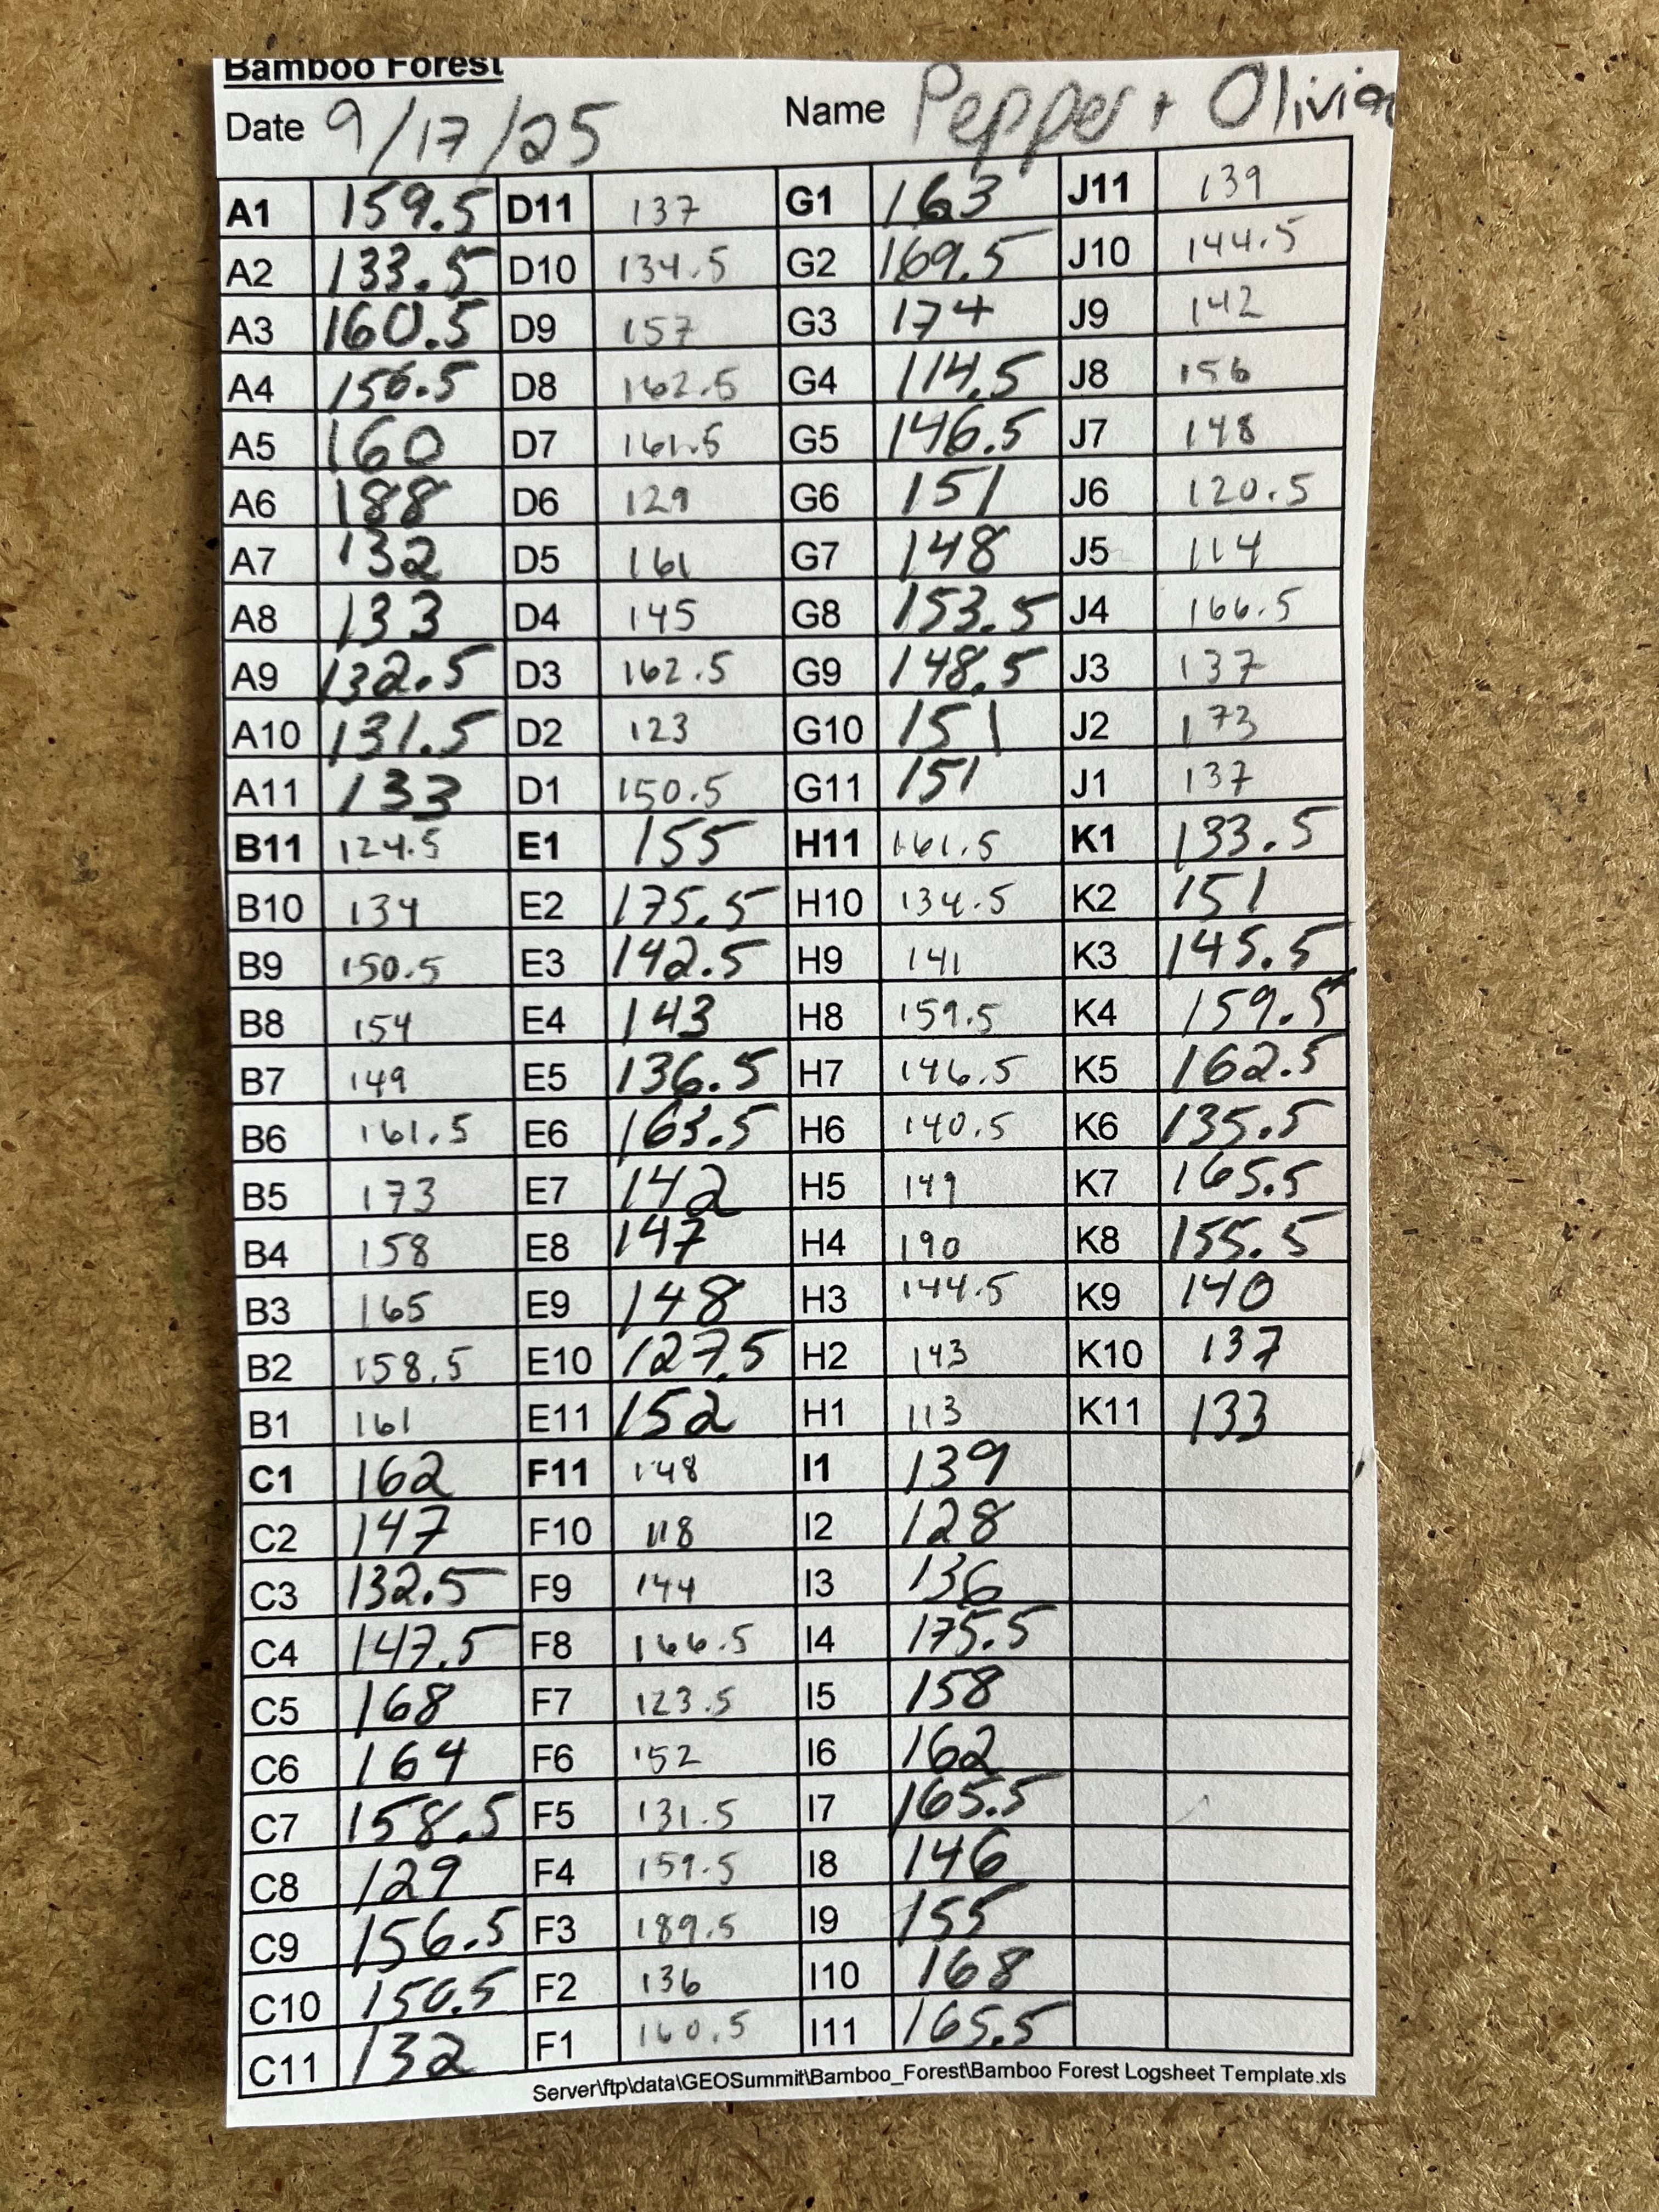 Bamboo Forest
Date 9/17/25 Name Pepper + Olivia
A1 159.5 D11 137 G1 163 J11 139
A2 133.5 D10 134.5 G2 169.5 J10 144.5
A3 160.5 D9 157 G3 174 J9 142
A4 156.5 D8 162.5 G4 114.5 J8 156
A5 160 D7 161.5 G5 146.5 J7 148
A6 188 D6 129 G6 151 J6 120.5
A7 132 D5 161 G7 148 J5 114
A8 133 D4 145 G8 153.5 J4 166.5
A9 132.5 D3 162.5 G9 148.5 J3 137
A10 131.5 D2 123 G10 151 J2 173
A11 133 D1 150.5 G11 151 J1 137
B11 124.5 E1 155 H11 161.5 K1 133.5
B10 134 E2 175.5 H10 134.5 K2 151
B9 150.5 E3 142.5 H9 141 K3 145.5
B8 154 E4 143 H8 159.5 K4 159.5
B7 149 E5 136.5 H7 146.5 K5 162.5
B6 161.5 E6 163.5 H6 140.5 K6 135.5
B5 173 E7 142 H5 149 K7 165.5
B4 158 E8 147 H4 190 K8 155.5
B3 165 E9 148 H3 144.5 K9 140
B2 158.5 E10 127.5 H2 143 K10 137
B1 161 E11 152 H1 113 K11 133
C1 162 F11 148 I1 139
C2 147 F10 118 I2 128
C3 132.5 F9 144 I3 136
C4 147.5 F8 166.5 I4 175.5
C5 168 F7 123.5 I5 158
C6 164 F6 152 I6 162
C7 158.5 F5 131.5 I7 165.5
C8 129 F4 159.5 I8 146
C9 156.5 F3 189.5 I9 155
C10 150.5 F2 136 I10 168
C11 132 F1 160.5 I11 165.5
Server\ftp\data\GEOSummit\Bamboo_Forest\Bamboo Forest Logsheet Template.xls